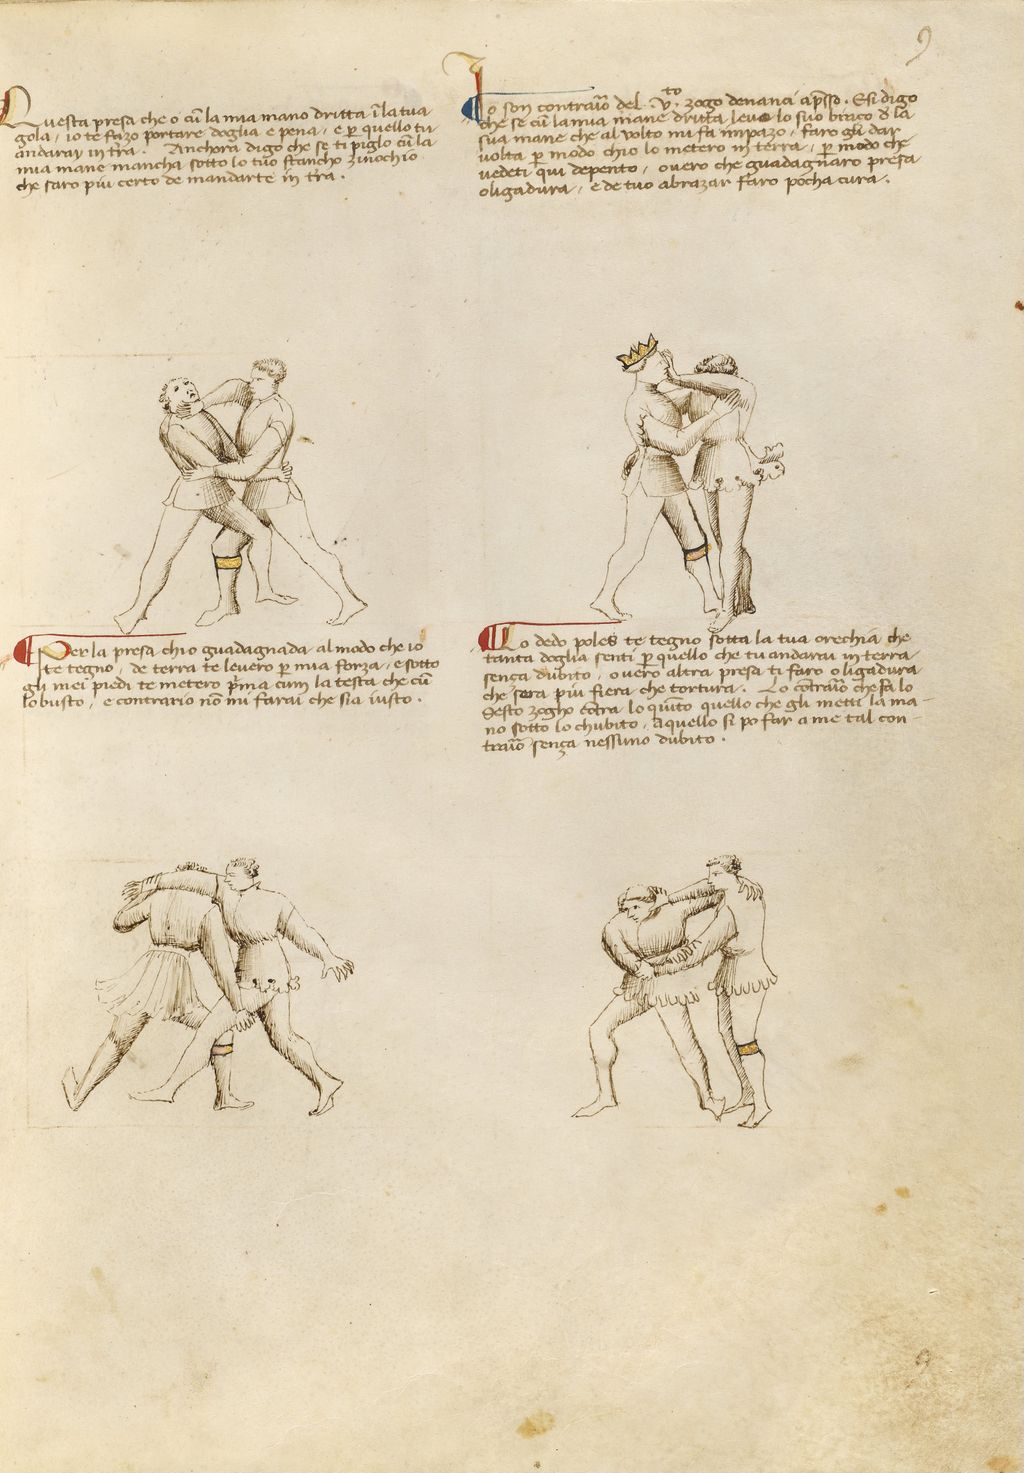 9
Questa presa che o cū la mia mano dritta ī la tua
gola, io te fazo portare doglia e pena, e p̱ quello tu
andarai in tr̄a. Anchora digo che se ti piglo cū la
mia mane mancha sotto lo tuo stancho zinochio
che saro piu certo de mandarte in tr̄a.
Io son contrario del .v.to zogo denanci ap̱sso. E si digo
che se cū la mia mane dritta levo lo suo brazo d̄ la
sua mane che al volto mi fa impazo, faro gli dar
volta p̱ modo chio lo metero in terra, p̱ modo che
vedeti qui depento, overo che guadagnaro presa
o ligadura, e de tuo abrazar faro pocha cura.
Per la presa chio guadagnada al modo che io
te tegno, de terra te levero p̱ mia forza, e sotto
gli mei piedi te metero p̄ma cum la testa che cū
lo busto, e contrario nō mi farai che sia iusto.
Lo dedo poles te tegno sotta la tua orechia che
tanta doglia senti p̱ quello che tu andarai in terra
senza dubito, overo altra presa ti faro o ligadura
che sera piu fiera che tortura. Lo cōtrario che fa lo
Sesto zogho cōtra lo quīto quello che gli metti la ma-
no sotto lo chubito, aquello si po far a me tal con-
trario senza nessuno dubito.